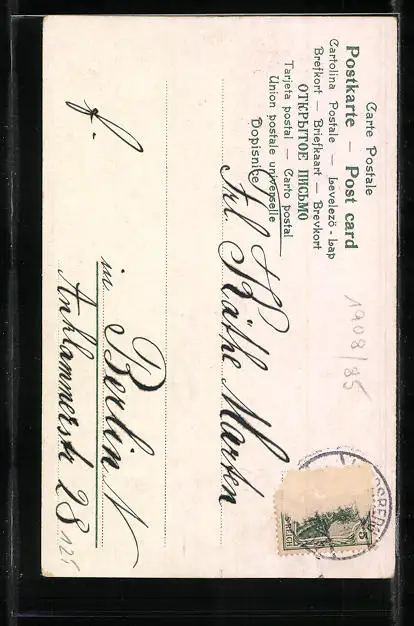 Carte Postale
Postkarte — Post card
Cartolina Postale — Levelező-Lap
Brefkort — Briefkaart — Brevkort
ОТКРЫТОЕ ПИСЬМО
Tarjeta postal — Carto postal
Union postale universelle
Dopisnice
1908/85
5
REICH
Frl. Käthe Marten
in Berlin N
Anklammerstr 28
125